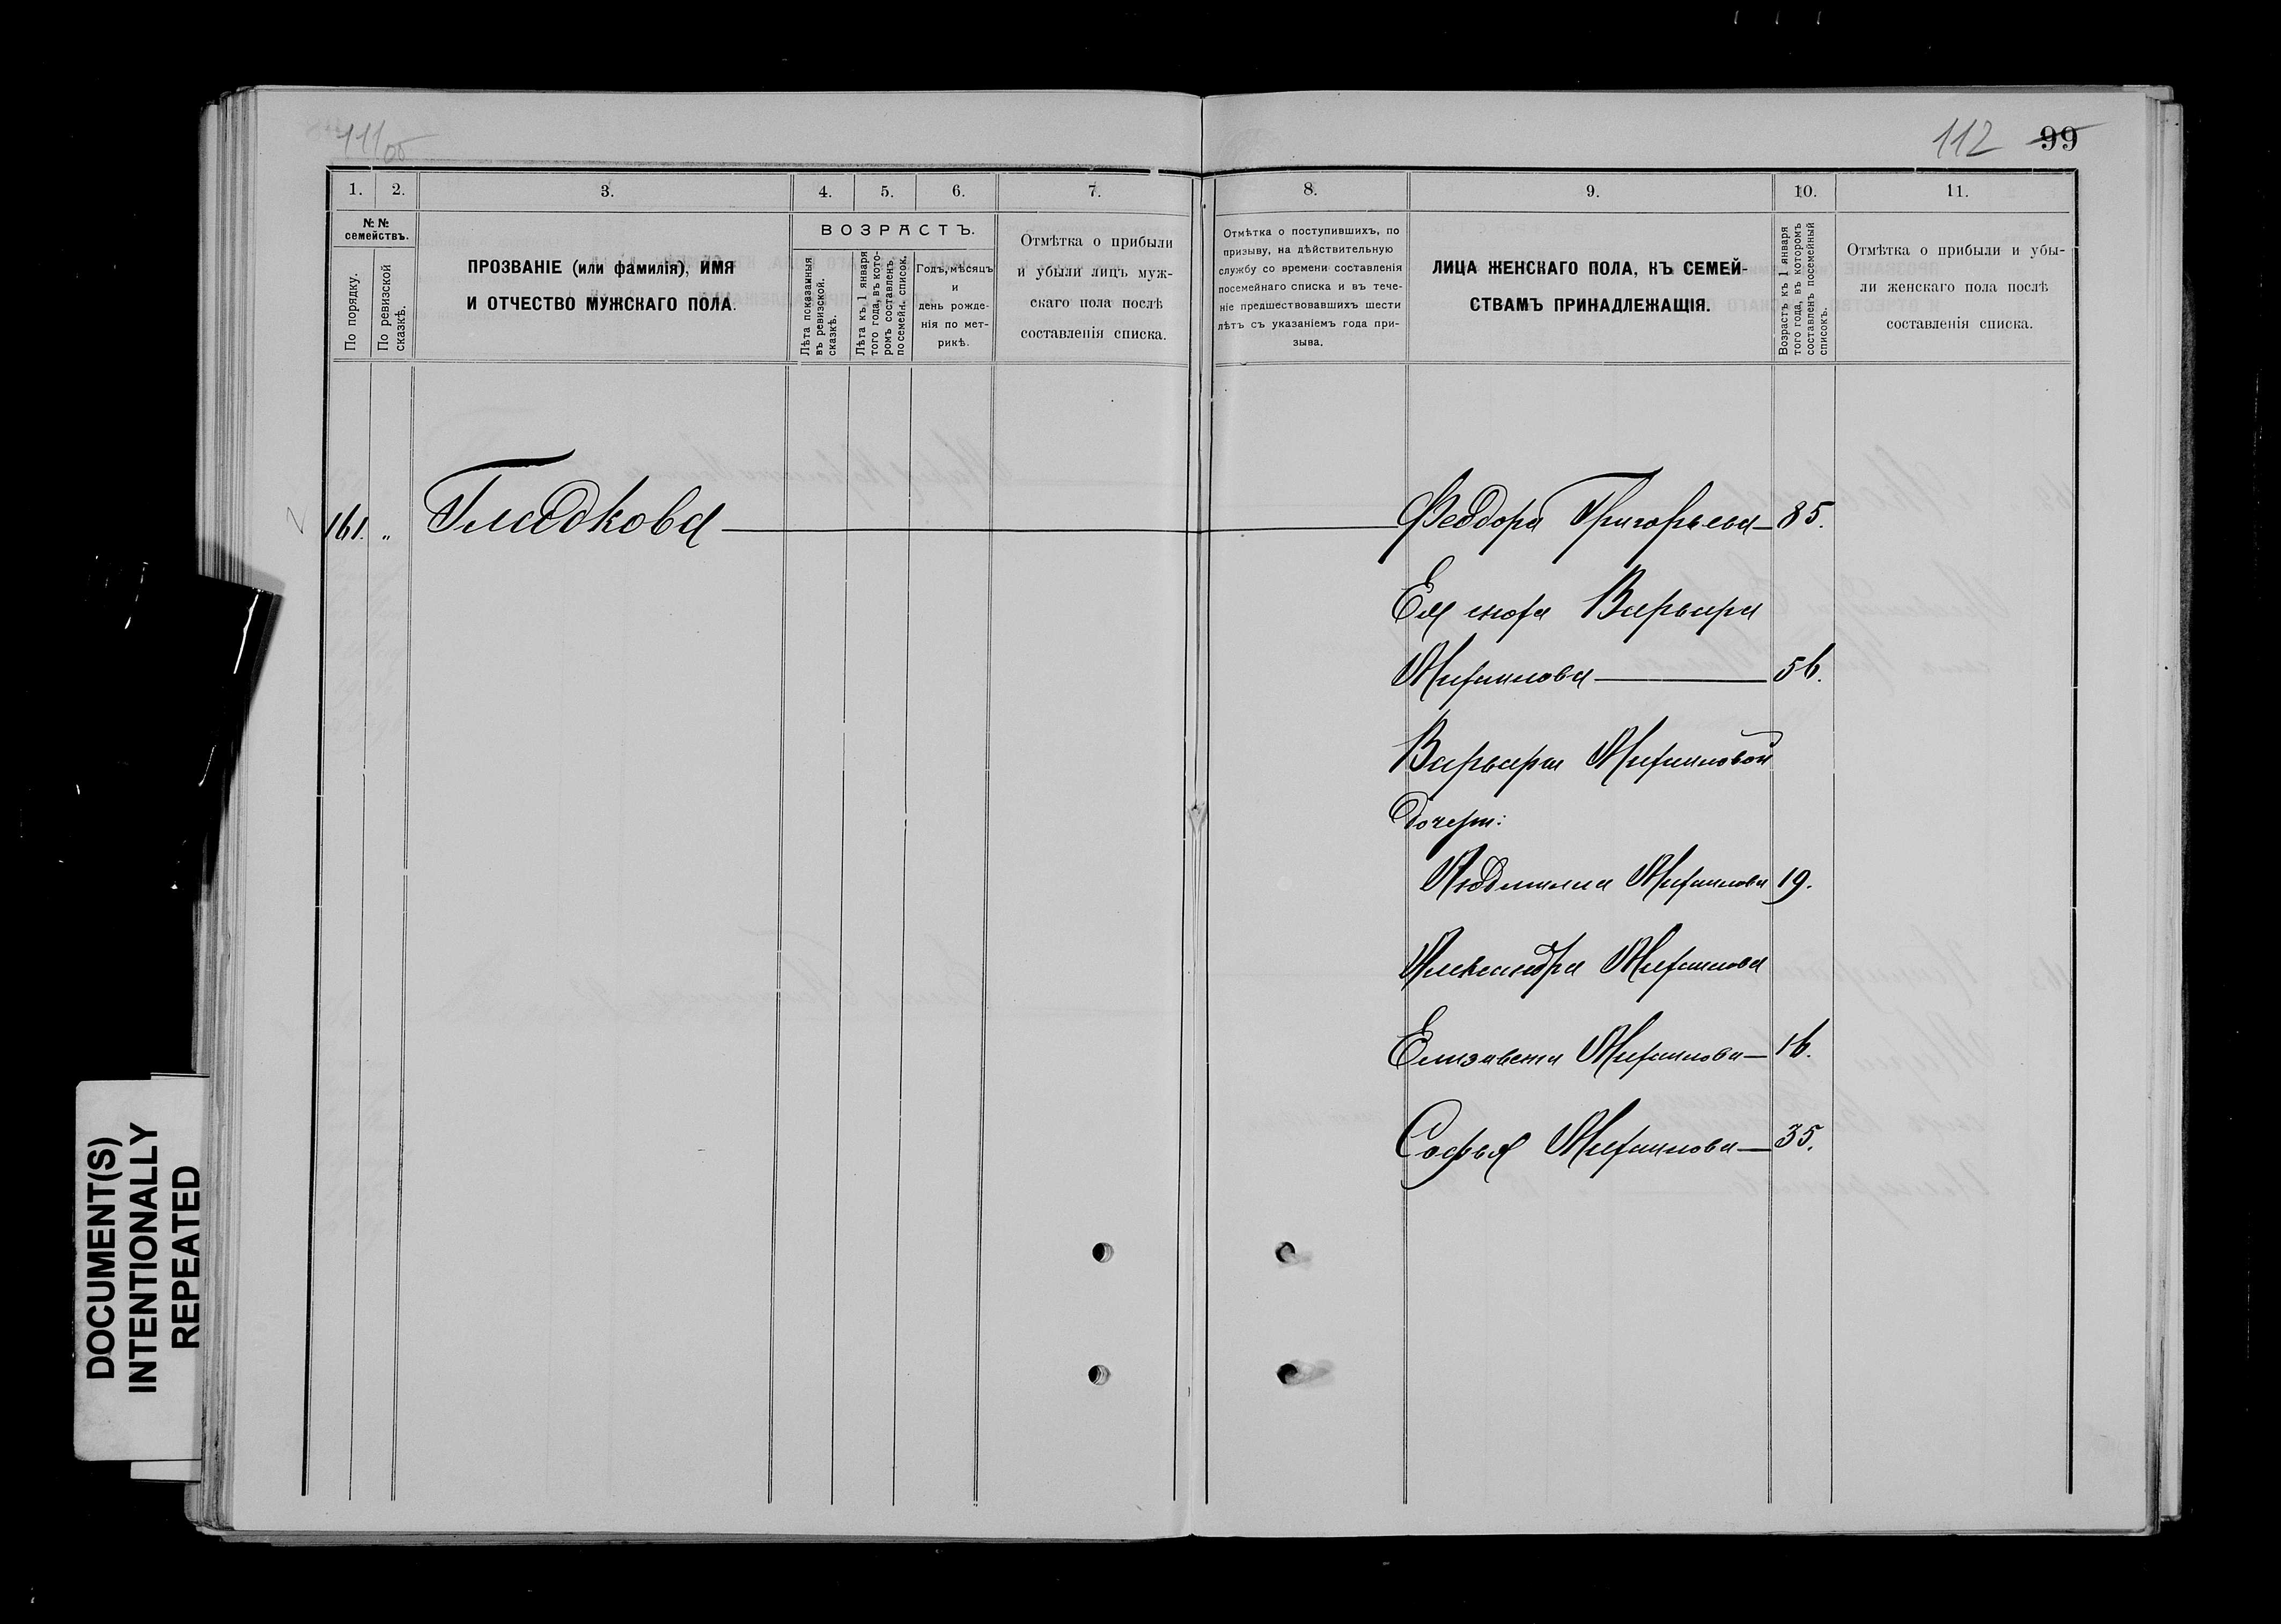 111 об
112 99
1. 2. 3. 4. 5. 6. 7. 8. 9. 10. 11.
№ №
семействъ.
По порядку.
По ревизской
сказкѣ.
ПРОЗВАНІЕ (или фамилія), ИМЯ
И ОТЧЕСТВО МУЖСКАГО ПОЛА.
ВОЗРАСТЪ.
Лѣта показанныя
въ ревизской.
сказкѣ.
Лѣта къ 1 января
того года, въ кото-
ромъ составленъ
посемейн. список.
Годъ, мѣсяцъ
и
день рожде-
нія по мет-
рикѣ.
Отмѣтка о прибыли
и убыли лицъ муж-
скаго пола послѣ
составленія списка.
Отмѣтка о поступившихъ, по
призыву, на дѣйствительную
службу со времени составленія
посемейнаго списка и въ тече-
ніе предшествовавшихъ шести
лѣтъ съ указаніемъ года при-
зыва.
ЛИЦА ЖЕНСКАГО ПОЛА, КЪ СЕМЕЙ-
СТВАМЪ ПРИНАДЛЕЖАЩІЯ.
Возрастъ къ 1 января
того года, въ которомъ
составленъ посемейный
списокъ.
Отмѣтка о прибыли и убы-
ли женскаго пола послѣ
составленія списка.
161. „ Гладкова — Феодора Григорьева — 85.
Ея сноха Варвара
Михаилова — 56.
Варвары Михаиловой
дочери:
Людмилла Михаилова 19.
Александра Михаилова
Елизавета Михаилова — 16.
Софья Михаилова — 35.
DOCUMENT(S)
INTENTIONALLY
REPEATED